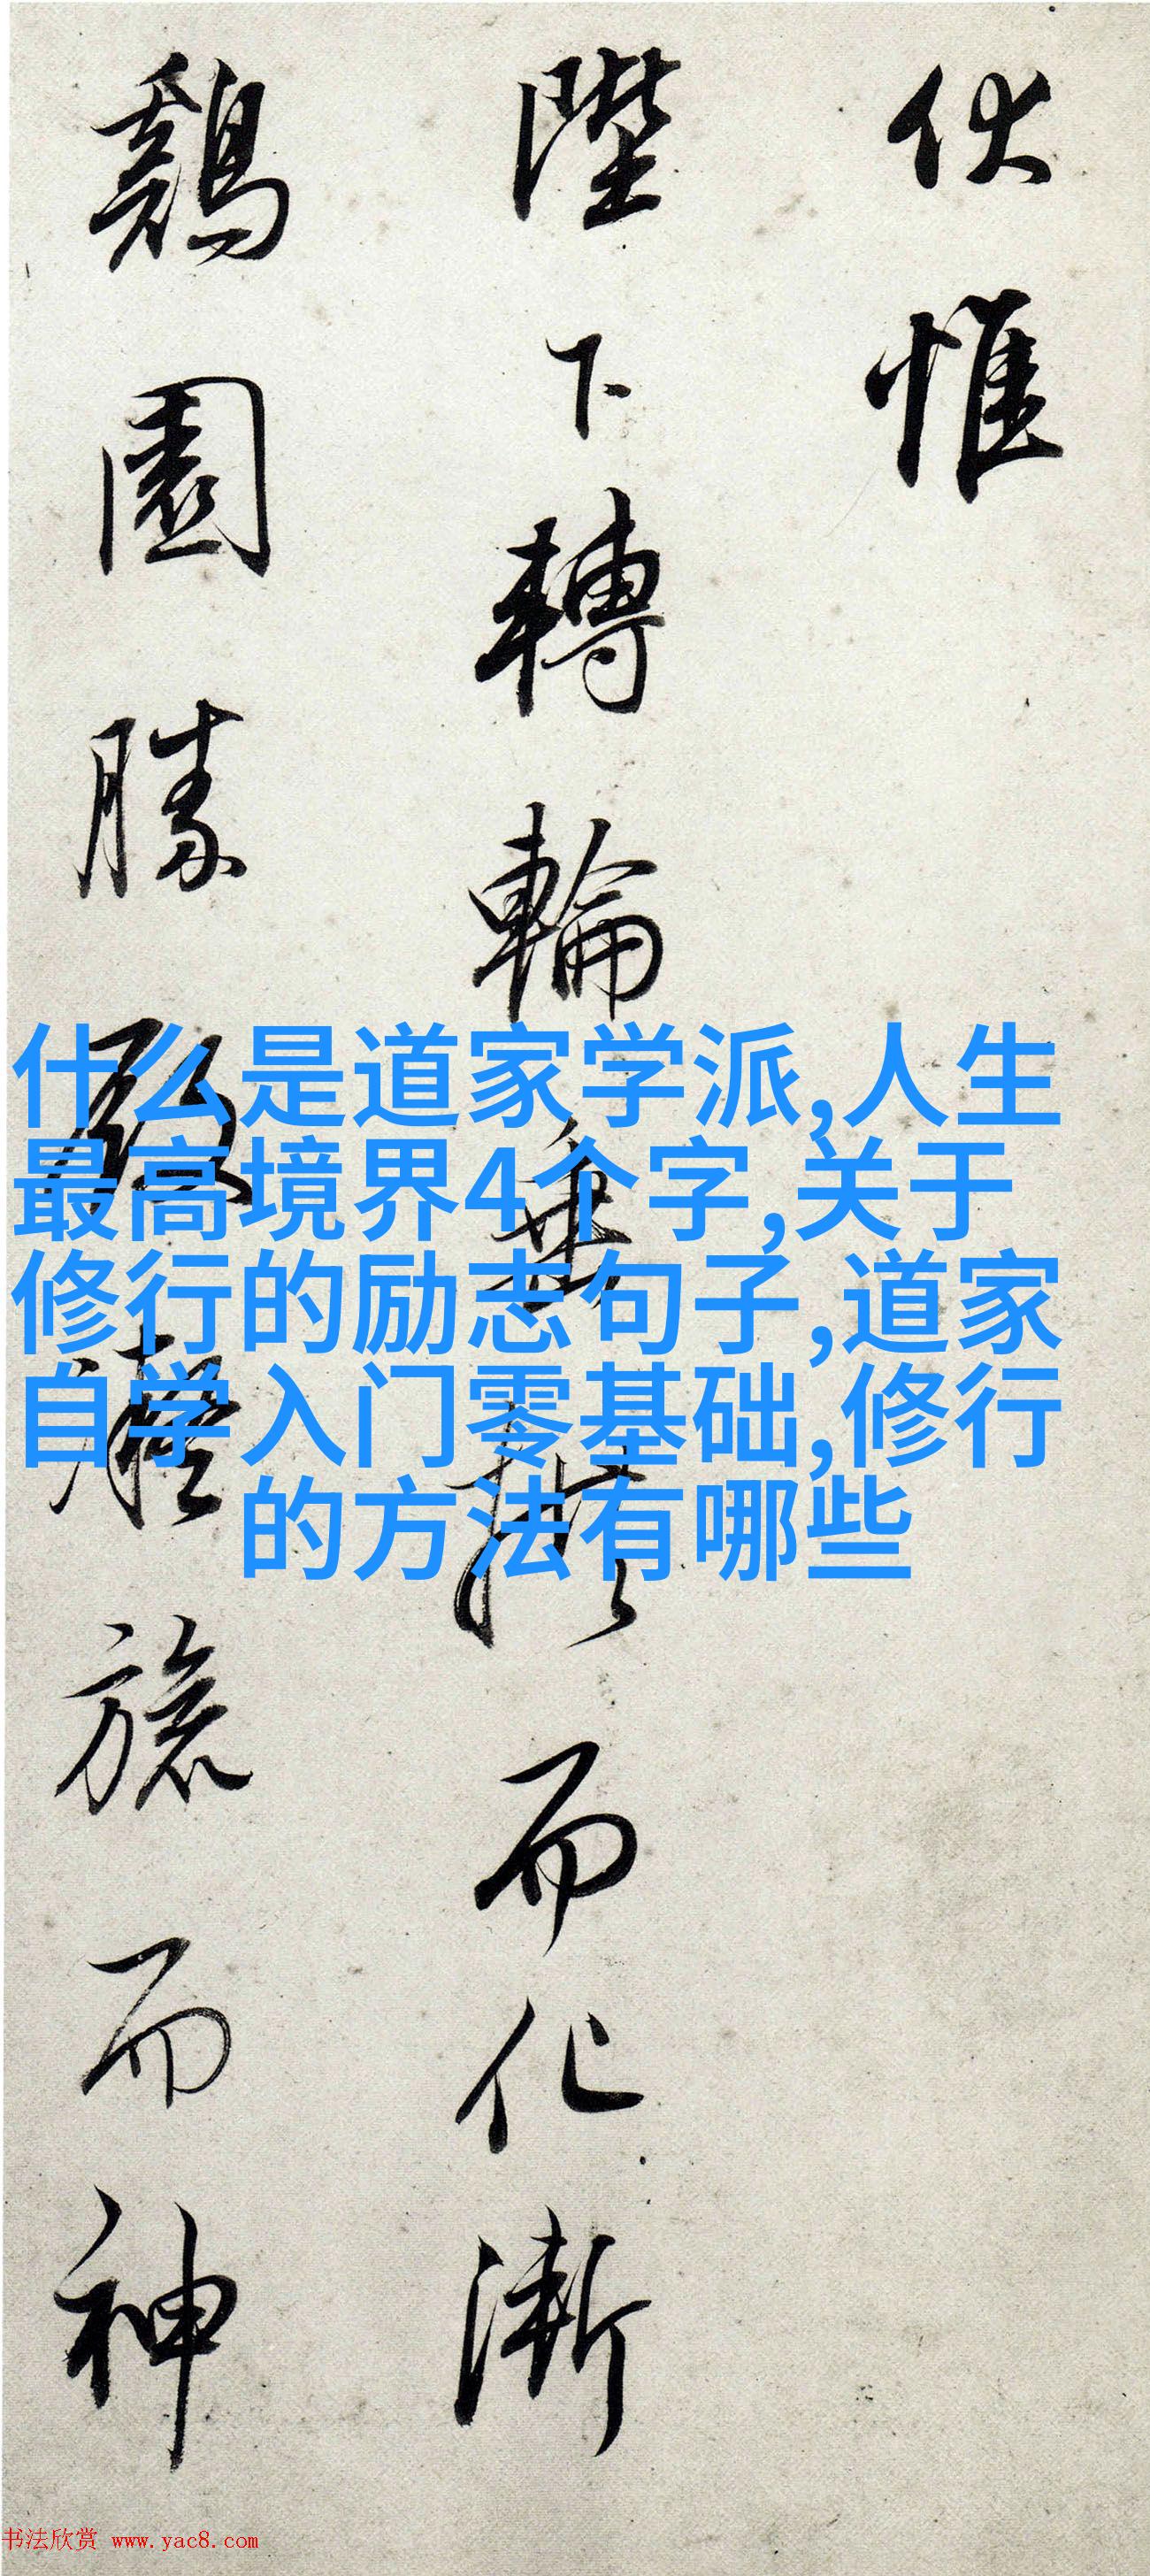 伏惟
陛下轉輪垂拱而化漸
鷄園勝
旒而神
什么是道家学派,人生
最高境界4个字,关于
修行的励志句子,道家
自学入门零基础,修行
的方法有哪些
书法欣赏 www.yac8.com